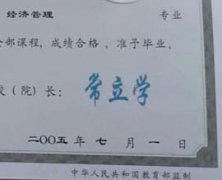 经济管理 专业
部课程，成绩合格，准予毕业，
（院）长： 常立学
二00五年 七 月 一 日
中华人民共和国教育部监制